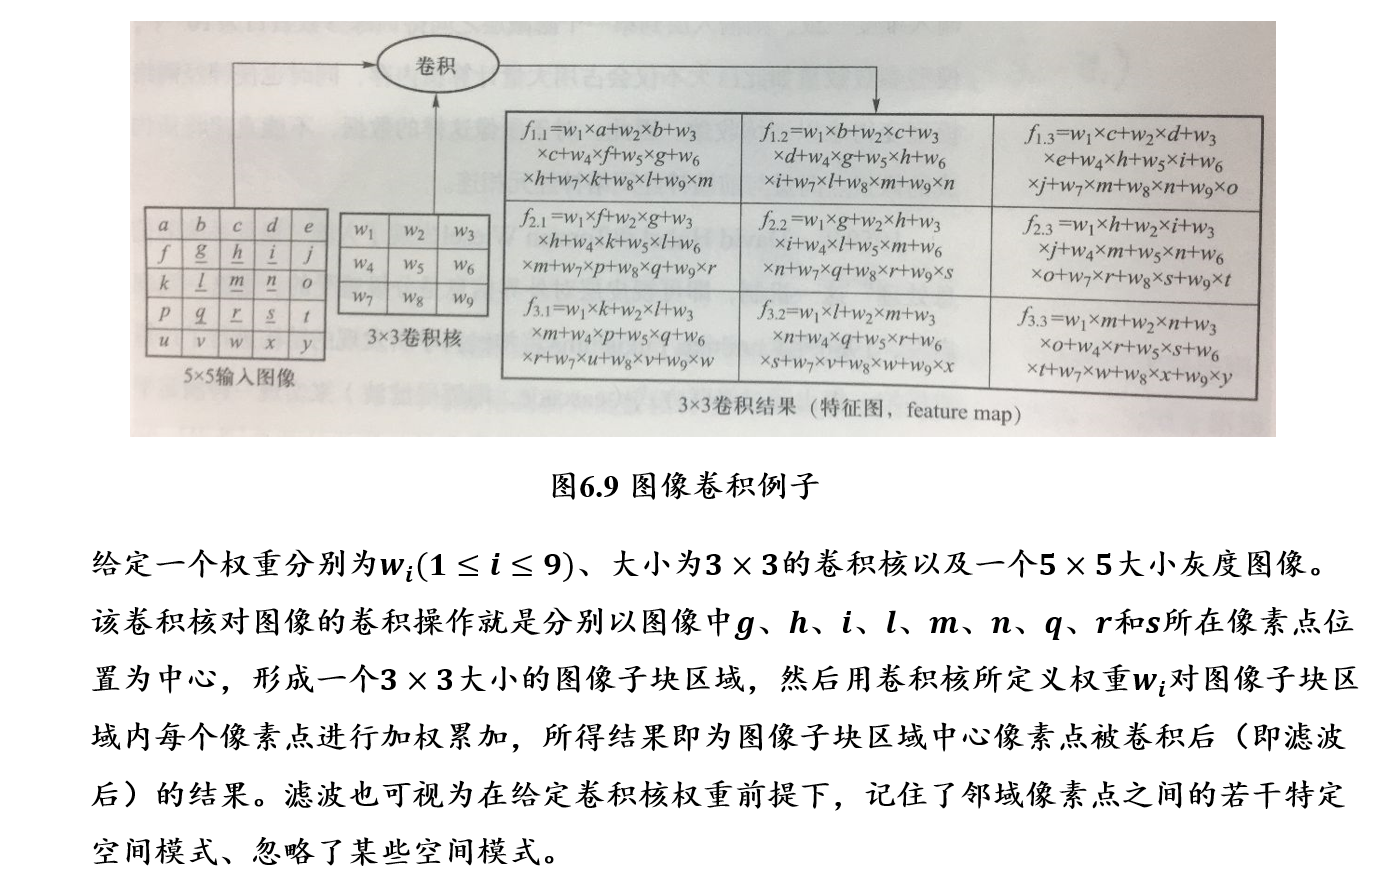 卷积
a b c d e
f g h i j
k l m n o
p q r s t
u v w x y
5×5输入图像
w₁ w₂ w₃
w₄ w₅ w₆
w₇ w₈ w₉
3×3卷积核
f₁.₁=w₁×a+w₂×b+w₃
×c+w₄×f+w₅×g+w₆
×h+w₇×k+w₈×l+w₉×m
f₁.₂=w₁×b+w₂×c+w₃
×d+w₄×g+w₅×h+w₆
×i+w₇×l+w₈×m+w₉×n
f₁.₃=w₁×c+w₂×d+w₃
×e+w₄×h+w₅×i+w₆
×j+w₇×m+w₈×n+w₉×o
f₂.₁=w₁×f+w₂×g+w₃
×h+w₄×k+w₅×l+w₆
×m+w₇×p+w₈×q+w₉×r
f₂.₂=w₁×g+w₂×h+w₃
×i+w₄×l+w₅×m+w₆
×n+w₇×q+w₈×r+w₉×s
f₂.₃=w₁×h+w₂×i+w₃
×j+w₄×m+w₅×n+w₆
×o+w₇×r+w₈×s+w₉×t
f₃.₁=w₁×k+w₂×l+w₃
×m+w₄×p+w₅×q+w₆
×r+w₇×u+w₈×v+w₉×w
f₃.₂=w₁×l+w₂×m+w₃
×n+w₄×q+w₅×r+w₆
×s+w₇×v+w₈×w+w₉×x
f₃.₃=w₁×m+w₂×n+w₃
×o+w₄×r+w₅×s+w₆
×t+w₇×w+w₈×x+w₉×y
3×3卷积结果（特征图，feature map）
图6.9 图像卷积例子
给定一个权重分别为wᵢ(1 ≤ i ≤ 9)、大小为3 × 3的卷积核以及一个5 × 5大小灰度图像。
该卷积核对图像的卷积操作就是分别以图像中g、h、i、l、m、n、q、r和s所在像素点位
置为中心，形成一个3 × 3大小的图像子块区域，然后用卷积核所定义权重wᵢ对图像子块区
域内每个像素点进行加权累加，所得结果即为图像子块区域中心像素点被卷积后（即滤波
后）的结果。滤波也可视为在给定卷积核权重前提下，记住了邻域像素点之间的若干特定
空间模式、忽略了某些空间模式。